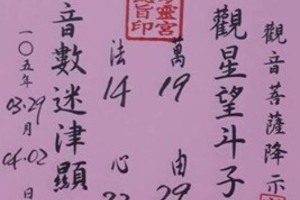 觀音菩薩降示
觀星望斗子
萬19由29
法14心
音數迷津顯
一〇五年03.29月04.02日
靈宮
旨印